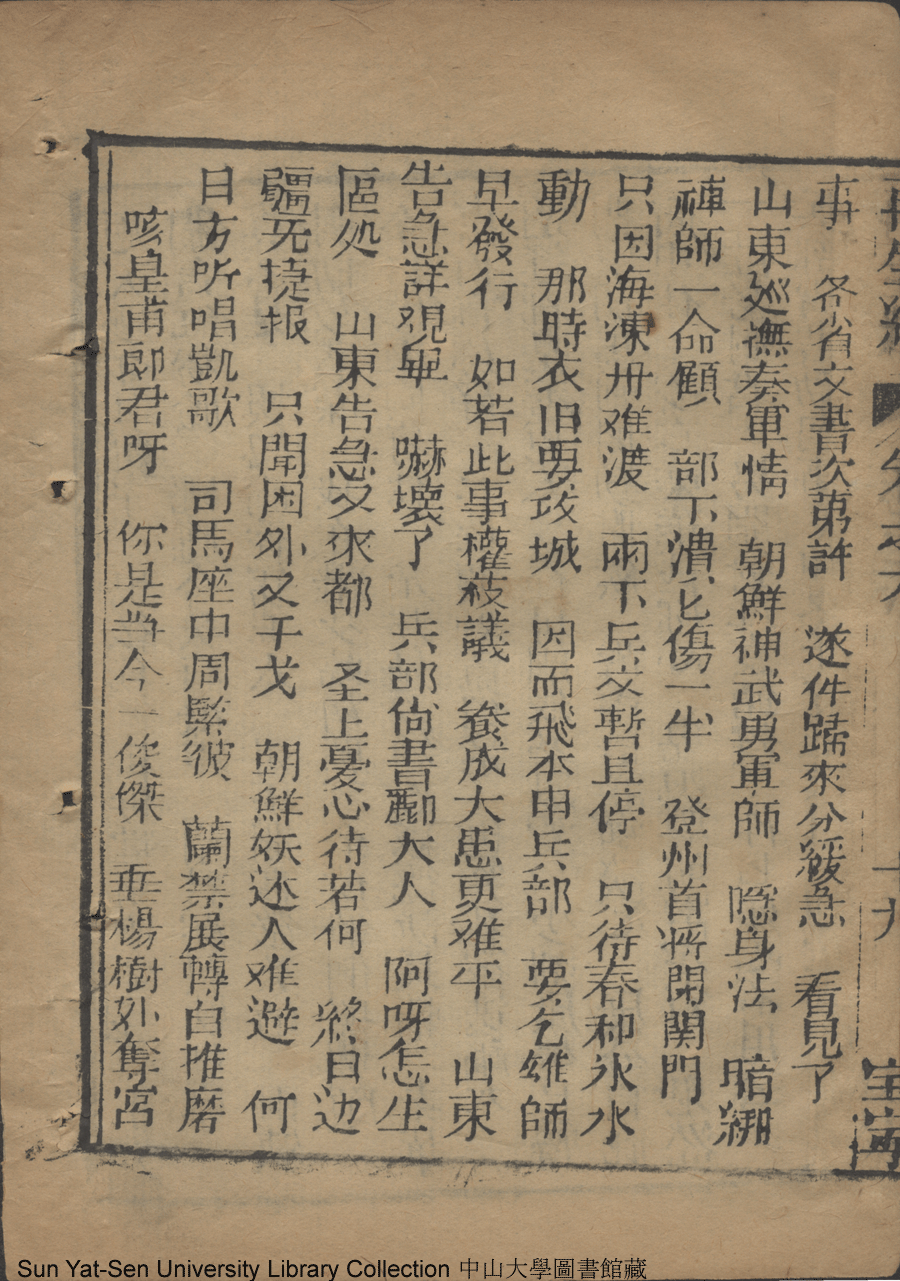 事　各省文書次第許　遂件歸來分緩急　看見了
山東廵撫奏軍情　朝鮮神武勇軍師　隠身法　暗綁
禆師一命顧　部下潰亡傷一半　登州首将閉関門
只因海凍卅难渡　兩下兵交暫且停　只待春和氷水
動　那時衣旧要攻城　因而飛本申兵部　要乞雄師
早發行　如若此事權莪議　養成大患更难平　山東
告急詳观畢　嚇壊了　兵部尙書酈大人　阿呀怎生
區处　山東告急又來都　圣上憂心待若何　終日边
疆旡捷报　只聞困外又干戈　朝鮮妖迯人难避　何
日方听唱凱歌　司馬座中周緊彼　蘭禁展轉自推磨
咳皇甫郎君呀　你是当今一俊傑　垂楊樹外奪宮
十九
Sun Yat-Sen University Library Collection 中山大學圖書館藏